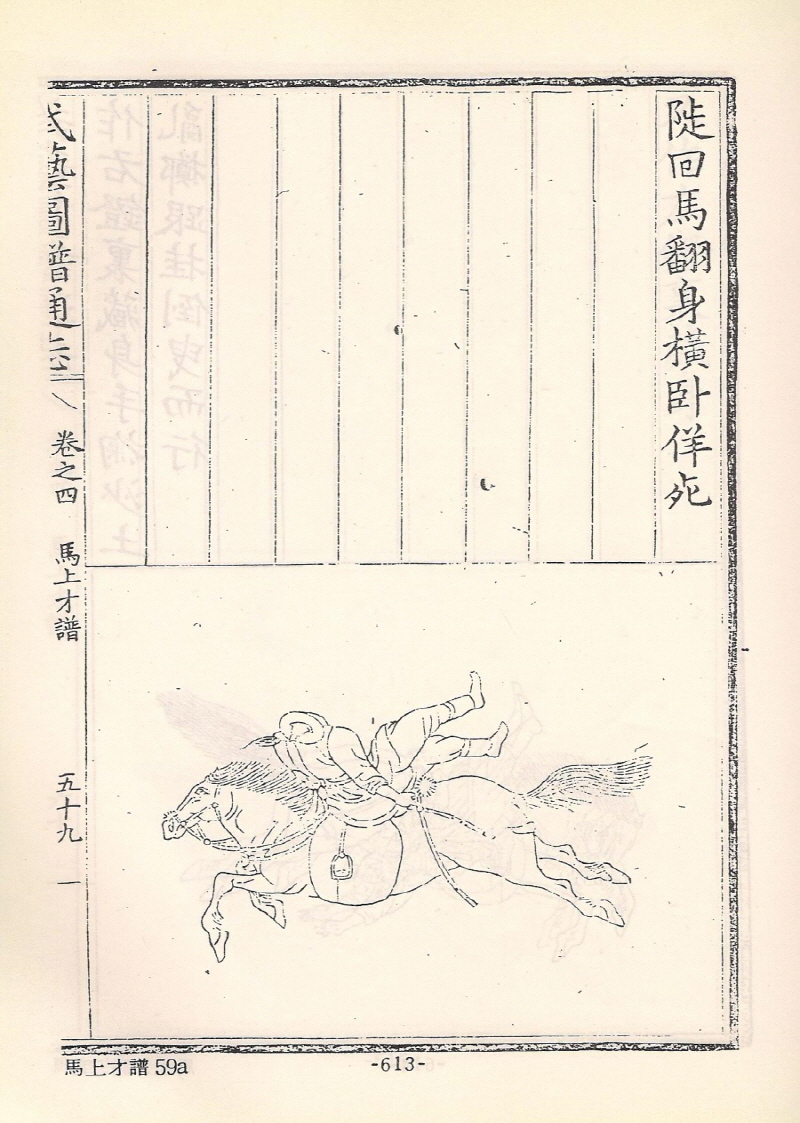 陡回馬翻身橫卧佯死
武藝圖譜通志 卷之四 馬上才譜 五十九
馬上才譜 59a
-613-